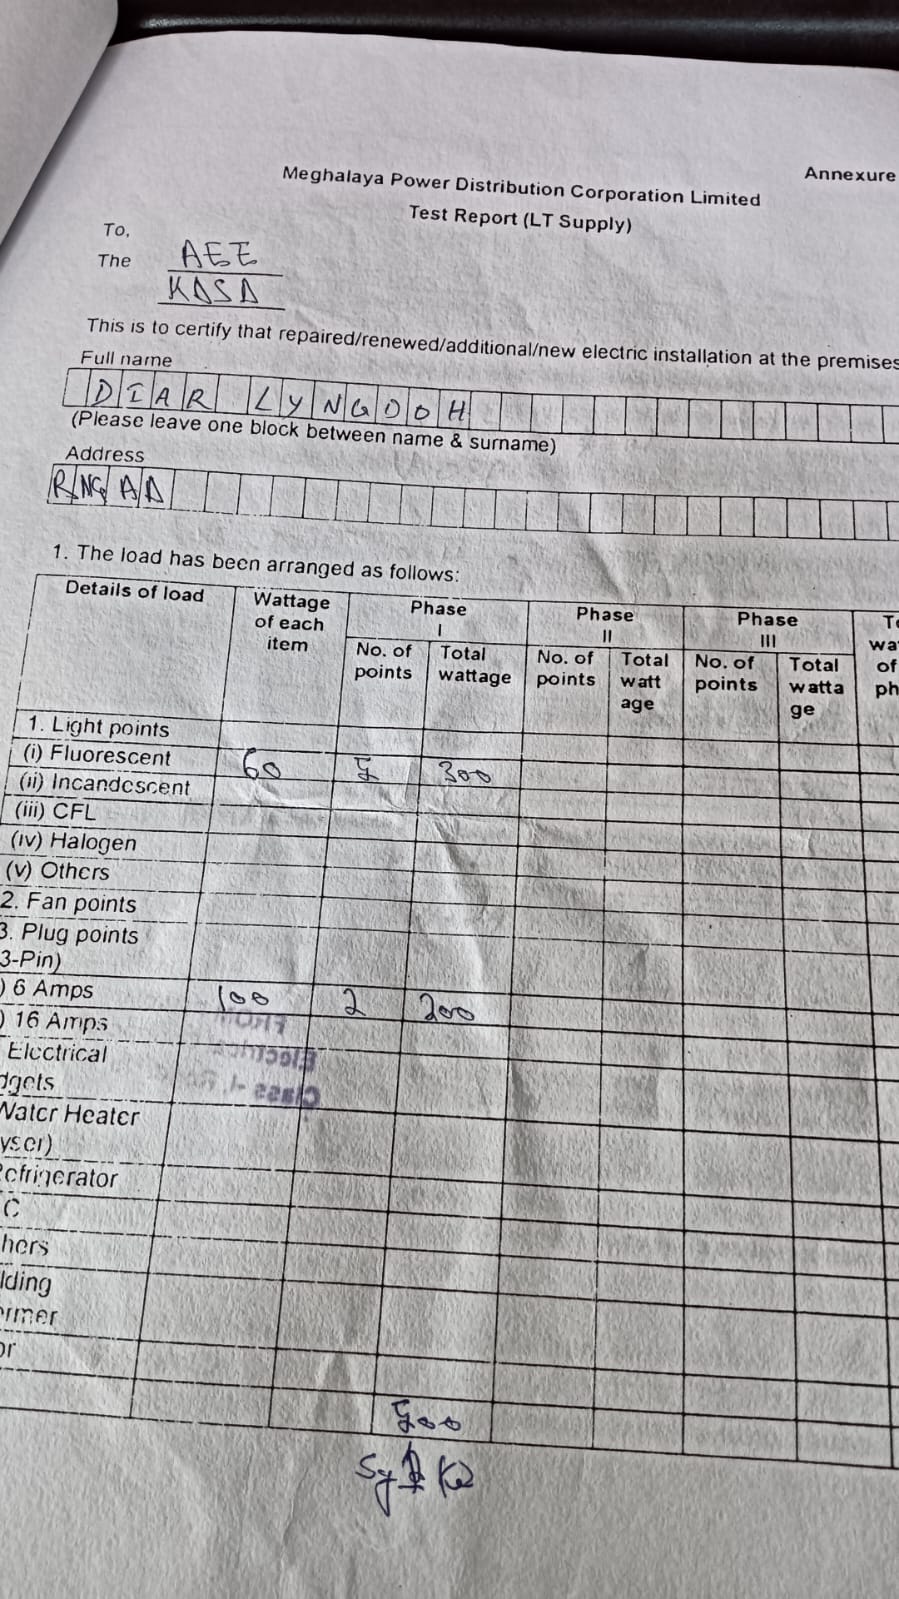 Annexure
Meghalaya Power Distribution Corporation Limited
Test Report (LT Supply)
To,
The AEE
KDSD
This is to certify that repaired/renewed/additional/new electric installation at the premises
Full name
DIAR LYNGDOH
(Please leave one block between name & surname)
Address
RNGAD
1. The load has been arranged as follows:
Details of load Wattage of each item Phase I Phase II Phase III
No. of points Total wattage No. of points Total watt age No. of points Total watta ge
1. Light points
(i) Fluorescent 60 5 300
(ii) Incandescent
(iii) CFL
(iv) Halogen
(v) Others
2. Fan points
3. Plug points
3-Pin)
) 6 Amps 100 2 200
) 16 Amps
Electrical
dgets
Water Heater
yser)
efrigerator
C
hers
lding
ormer
or
500